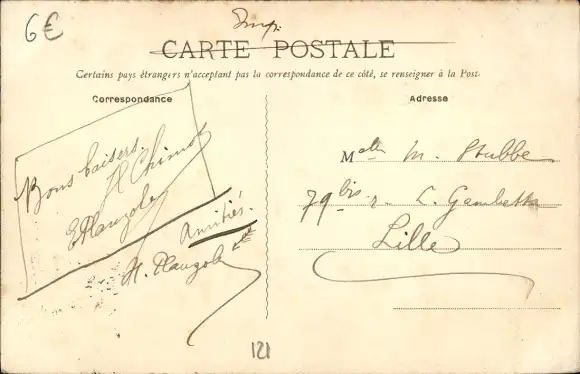 6€
CARTE POSTALE
Certains pays étrangers n'acceptant pas la correspondance de ce côté, se renseigner à la Poste
Correspondance
Bons baisers.
Amitiés.
121
Adresse
Melle M. Stubbe
79 bis r. L. Gambetta
Lille